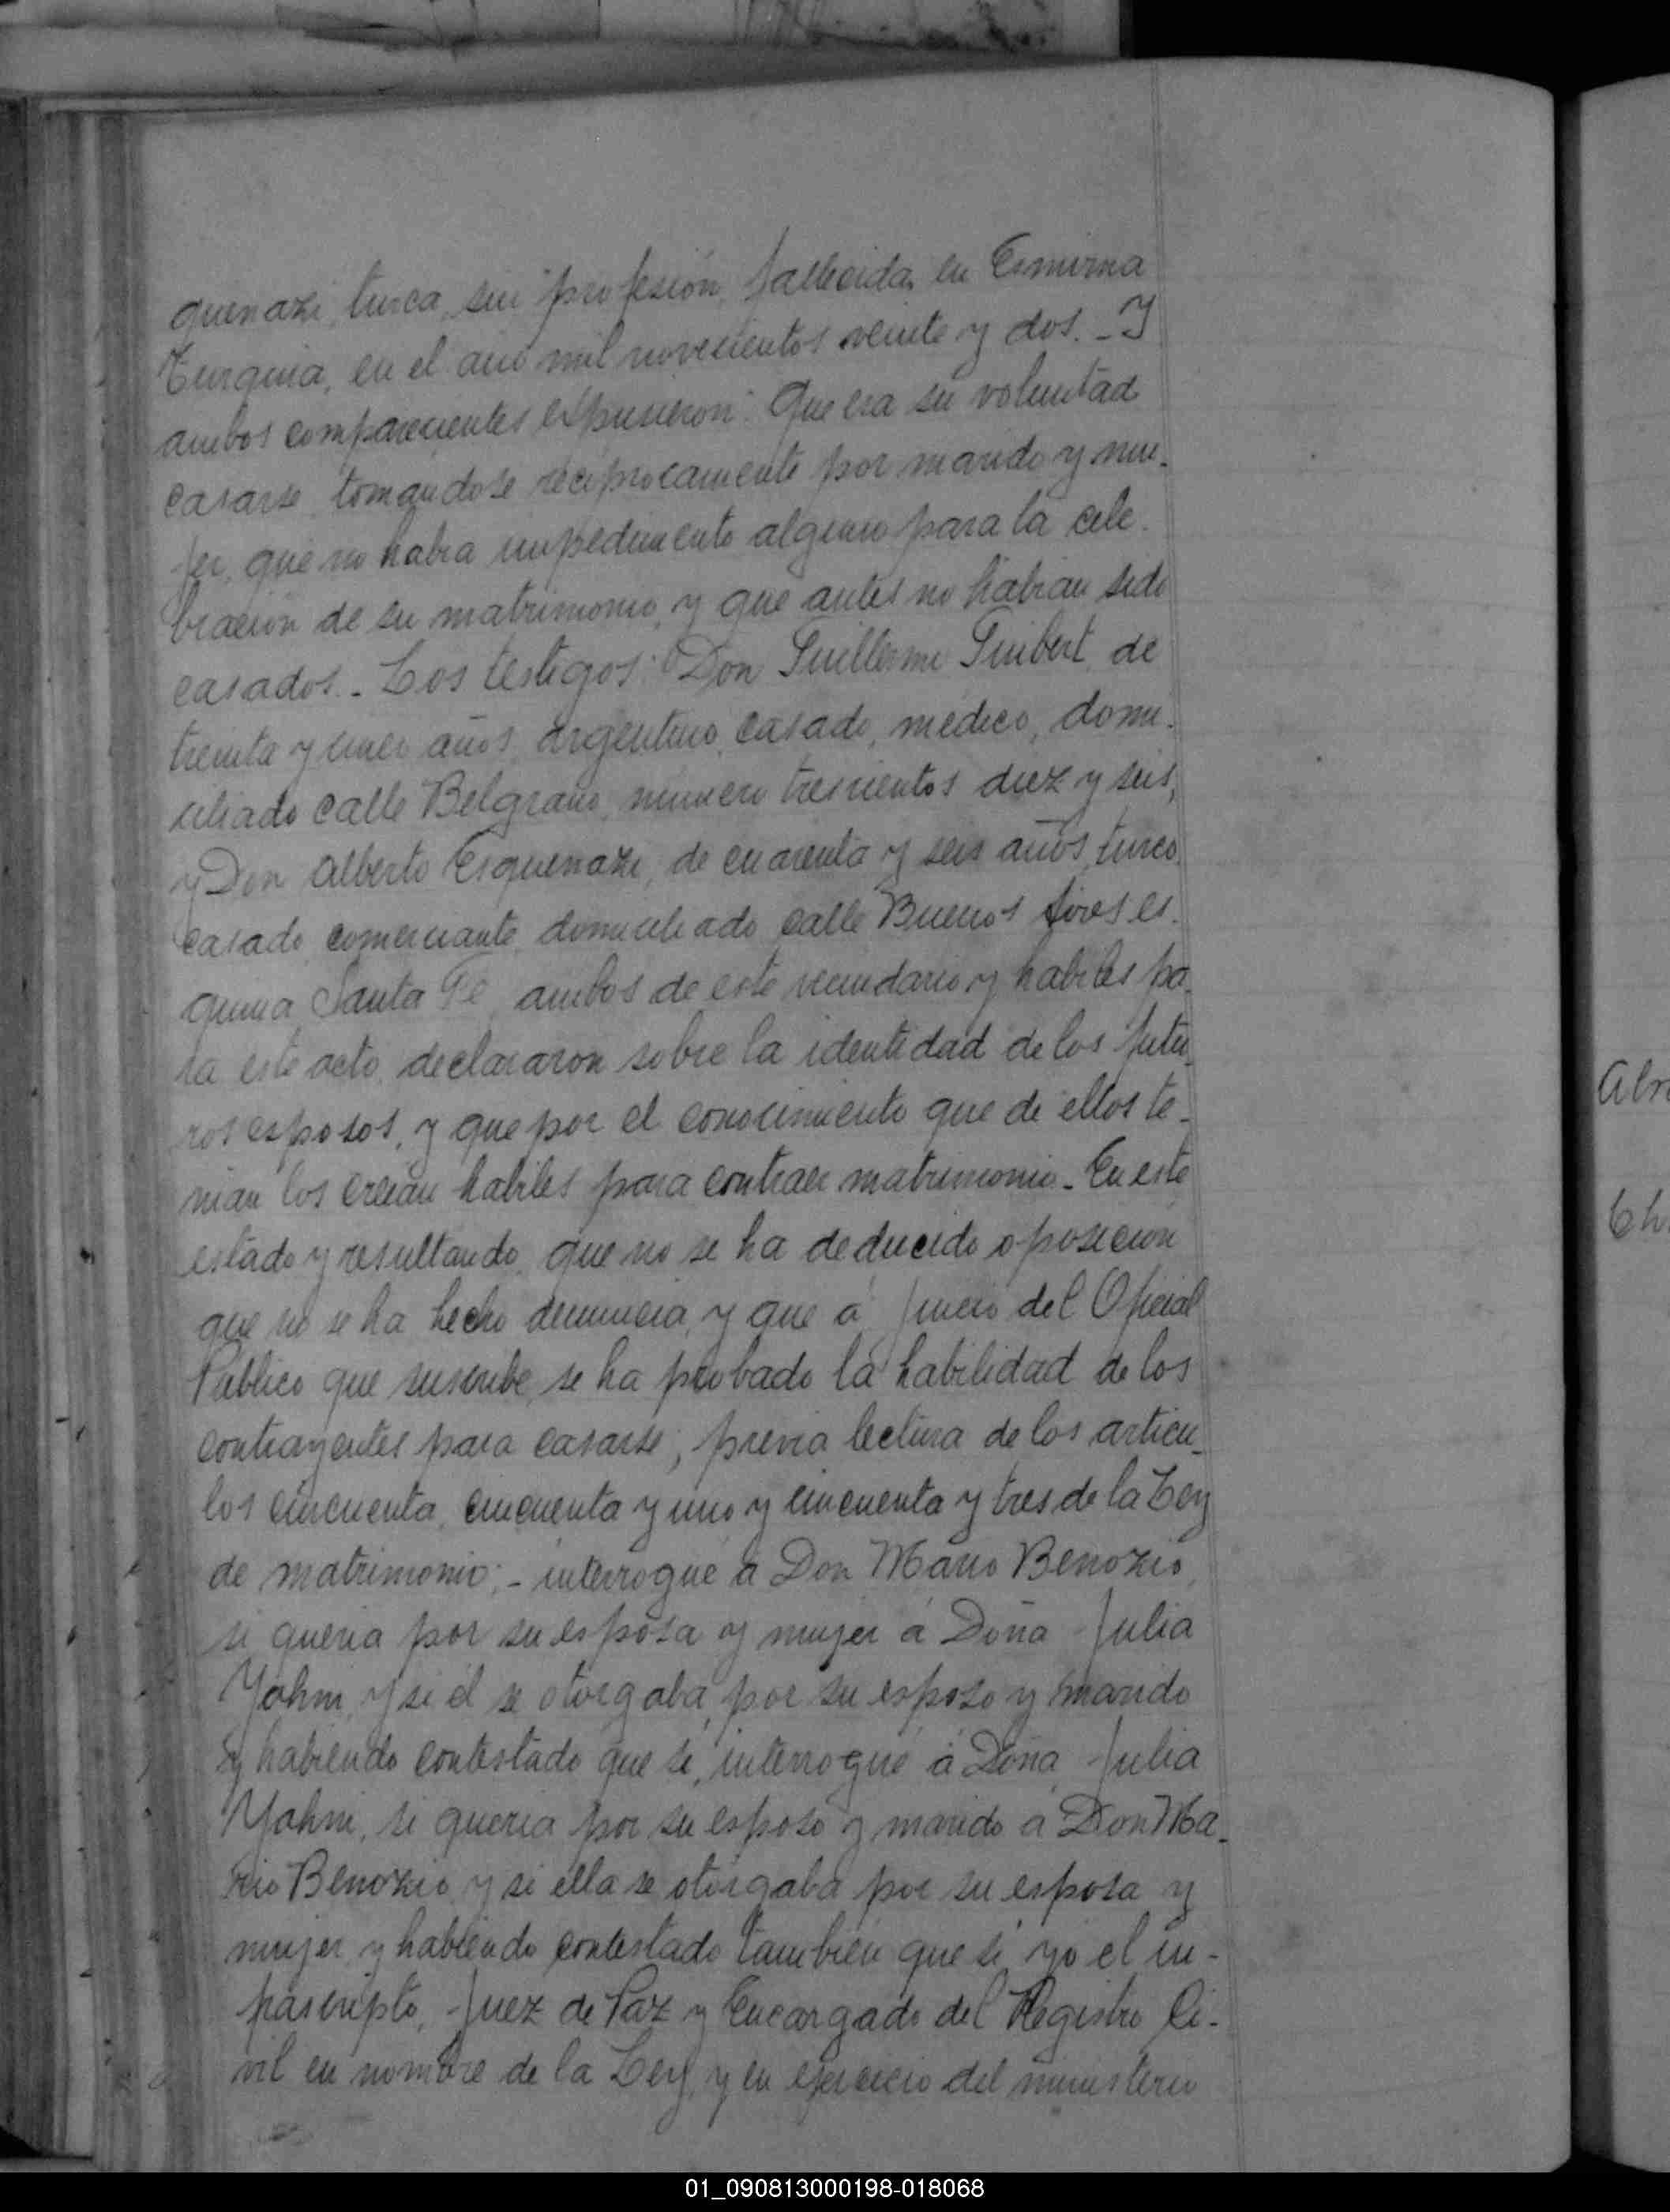 quenazi, turca, sin profesión, fallecida en Esmirna
Turquia, en el año mil novecientos veinte y dos. - Y
ambos comparecientes expusieron: Que era su voluntad
casarse, tomandose reciprocamente por marido y mu-
jer, que no habia impedimento alguno para la cele-
bración de su matrimonio, y que antes no habian sido
casados. - Los testigos: Don Guillermo Guibert, de
treinta y cinco años, argentino, casado, médico, domi-
ciliado calle Belgrano, número trescientos diez y seis,
y Don Alberto Esquenazi, de cuarenta y seis años, turco,
casado, comerciante, domiciliado calle Buenos Aires es-
quina Santa Fé, ambos de este vecindario y habiles pa-
ra este acto, declararon sobre la identidad de los futu-
ros esposos, y que por el conocimiento que de ellos te-
nian los creian habiles para contraer matrimonio. - En este
estado y resultando, que no se ha deducido oposicion
que no se ha hecho denuncia, y que á juicio del Oficial
Publico que suscribe, se ha probado la habilidad de los
contrayentes para casarse; previa lectura de los articu-
los cincuenta, cincuenta y uno y cincuenta y tres de la Ley
de matrimonio; - interrogué á Don Mario Benozio,
si queria por su esposa y mujer á Doña Julia
Yohni, y si él se otorgaba, por su esposo y marido
y habiendo contestado que sí, interrogué á Doña Julia
Yohni, si queria por su esposo y marido á Don Ma-
rio Benozio y si ella se otorgaba por su esposa y
mujer y habiendo contestado también que sí, yo el in-
frascripto, Juez de Paz y Encargado del Registro Ci-
vil en nombre de la Ley, y en ejercicio del ministerio
Abr
Ch
01_090813000198-018068